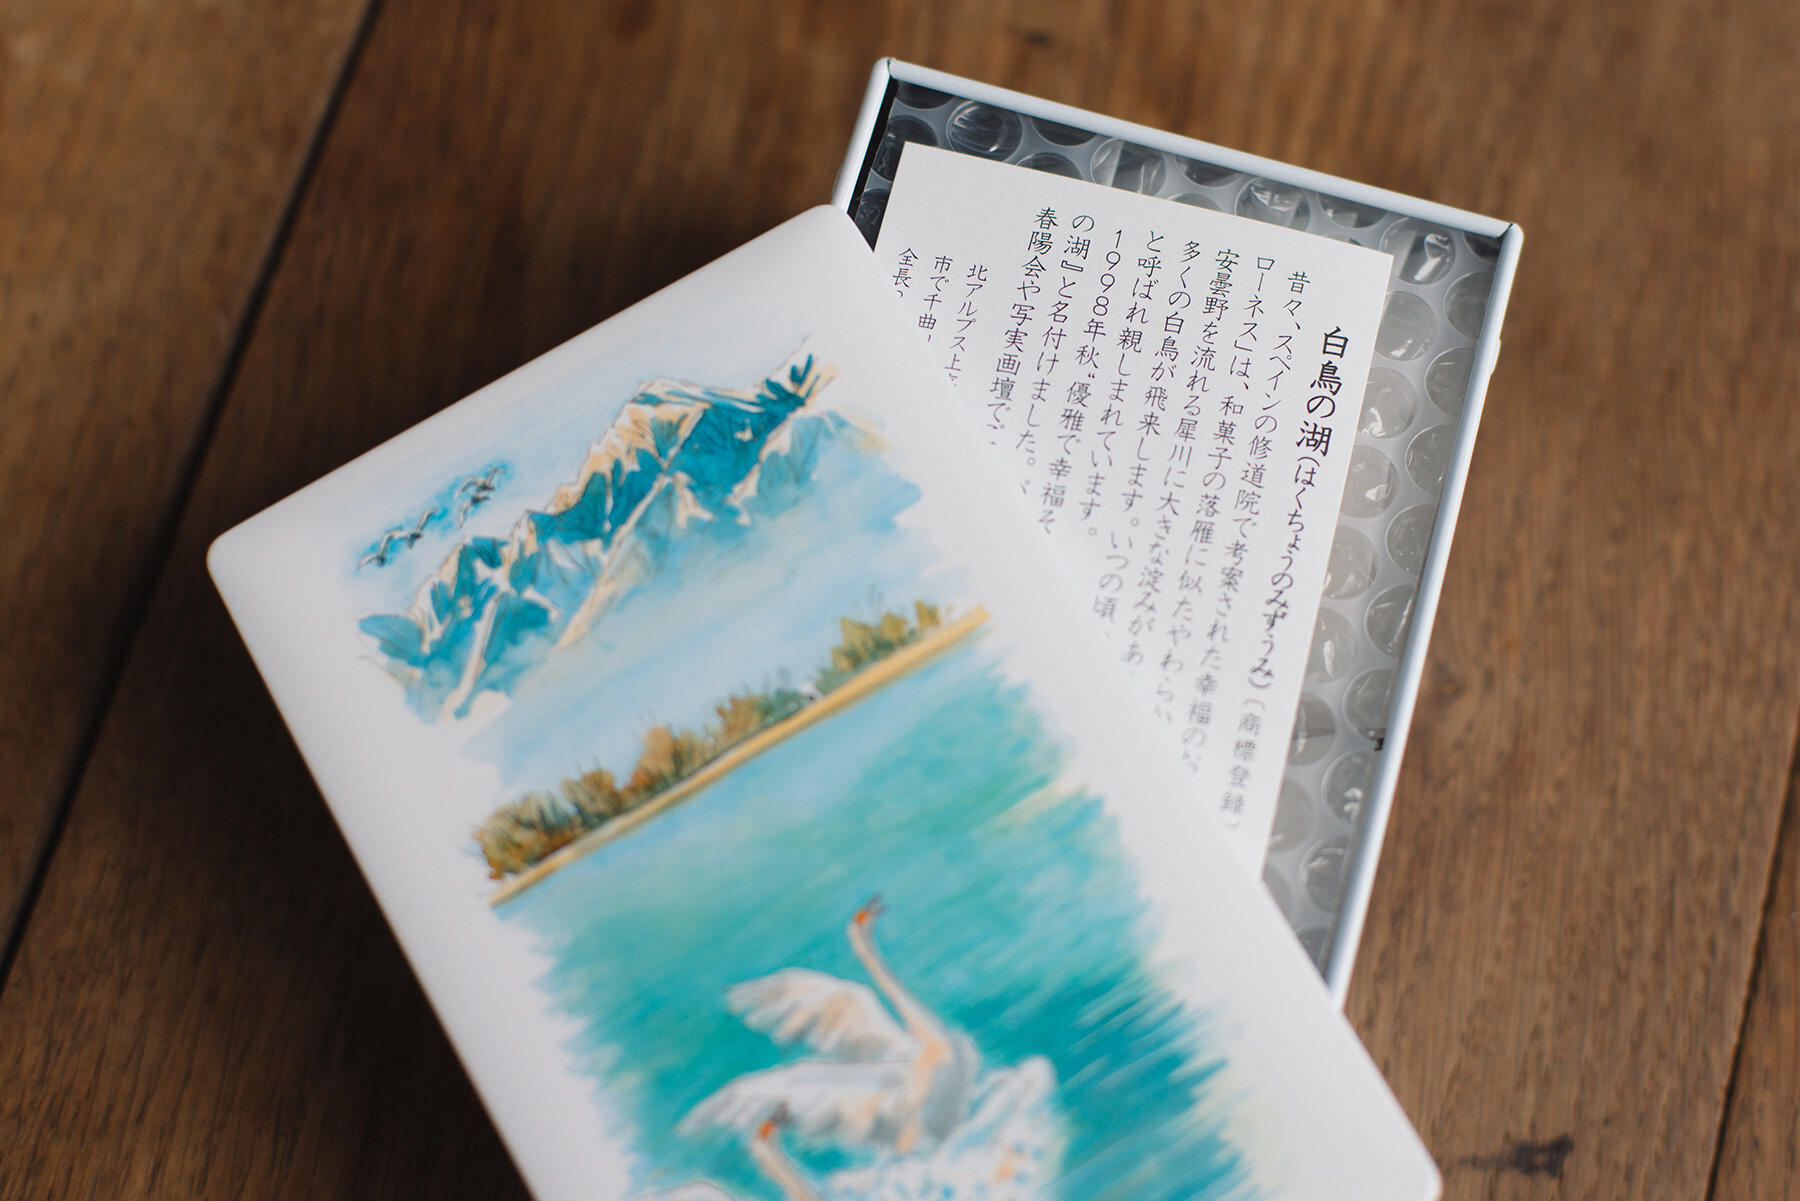 白鳥の湖(はくちょうのみずうみ)〔商標登録〕
昔々、スペインの修道院で考案された幸福のお
ローネス」は、和菓子の落雁に似たやわらか
安曇野を流れる犀川に大きな淀みがあ
多くの白鳥が飛来します。いつの頃
と呼ばれ親しまれています。
1998年秋“優雅で幸福そ
の湖』と名付けました。
春陽会や写実画壇で
北アルプス上
市で千曲
全長